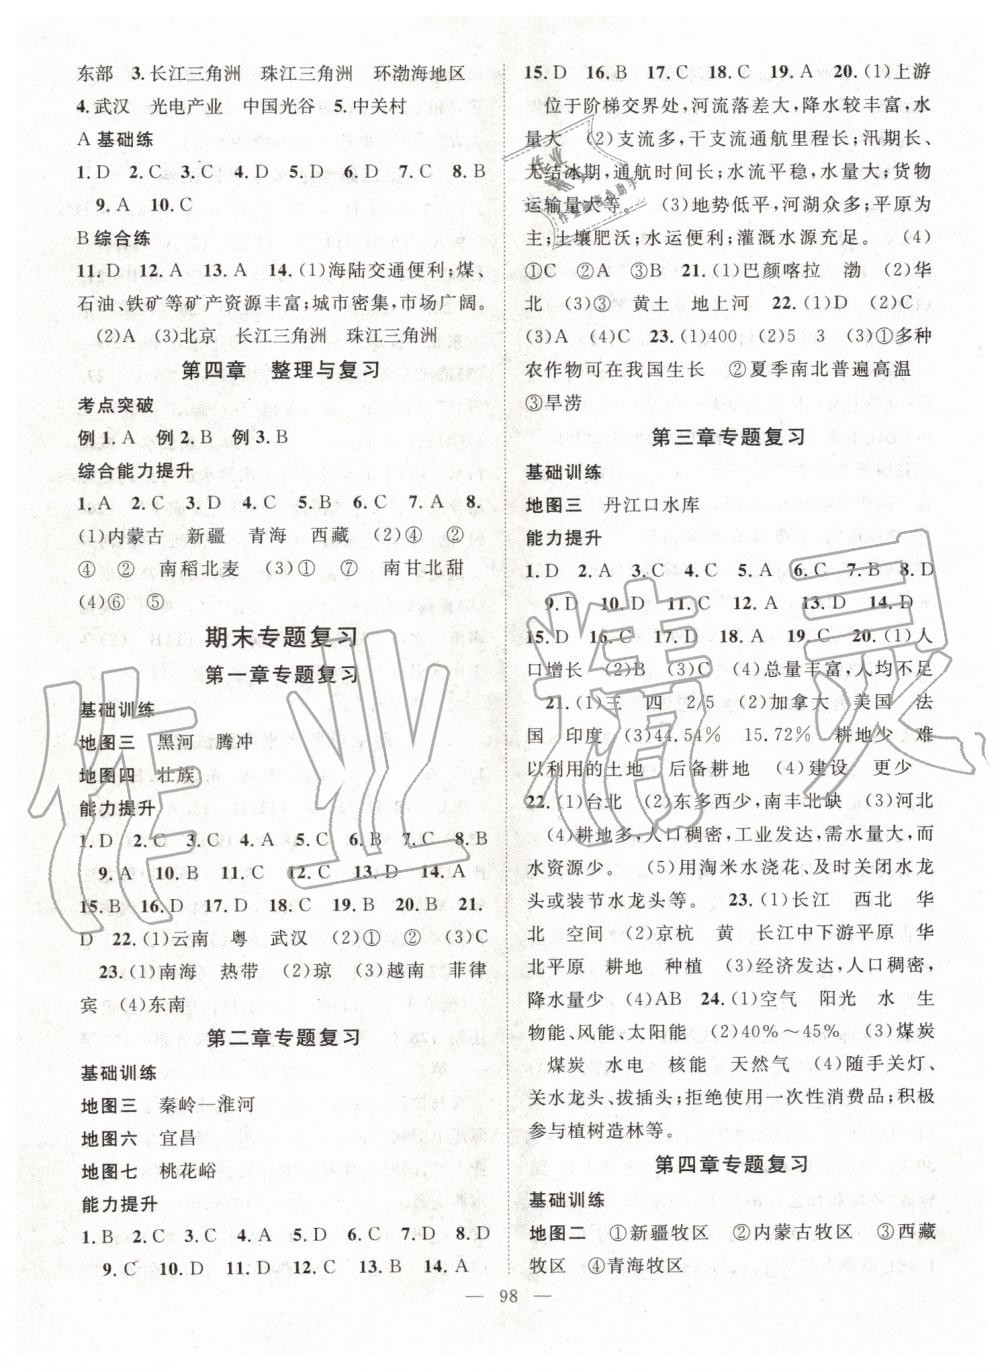 东部 3.长江三角洲 珠江三角洲 环渤海地区
4.武汉 光电产业 中国光谷 5.中关村
A 基础练
1.D 2.C 3.C 4.C 5.D 6.D 7.C 8.B
9.A 10.C
B 综合练
11.D 12.A 13.A 14.(1)海陆交通便利;煤、
石油、铁矿等矿产资源丰富;城市密集,市场广阔。
(2)A (3)北京 长江三角洲 珠江三角洲
第四章 整理与复习
考点突破
例 1.A 例 2.B 例 3.B
综合能力提升
1.A 2.C 3.D 4.C 5.B 6.C 7.A 8.
(1)内蒙古 新疆 青海 西藏 (2)④ ②
④ ② 南稻北麦 (3)① ⑦ 南甘北甜
(4)⑥ ⑤
期末专题复习
第一章专题复习
基础训练
地图三 黑河 腾冲
地图四 壮族
能力提升
1.D 2.C 3.C 4.A 5.A 6.B 7.C 8.B
9.A 10.B 11.C 12.C 13.D 14.A
15.B 16.D 17.D 18.C 19.B 20.B 21.
D 22.(1)云南 粤 武汉 (2)① ② (3)C
23.(1)南海 热带 (2)琼 (3)越南 菲律
宾 (4)东南
第二章专题复习
基础训练
地图三 秦岭—淮河
地图六 宜昌
地图七 桃花峪
能力提升
1.B 2.C 3.C 4.A 5.D 6.B 7.D 8.D
9.C 10.D 11.D 12.D 13.B 14.A
15.D 16.B 17.C 18.C 19.A 20.(1)上游
位于阶梯交界处,河流落差大,降水较丰富,水
量大 (2)支流多,干支流通航里程长;汛期长、
无结冰期,通航时间长;水流平稳,水量大;货物
运输量大等。 (3)地势低平,河湖众多;平原为
主;土壤肥沃;水运便利;灌溉水源充足。 (4)
①C ②A ③B 21.(1)巴颜喀拉 渤 (2)华
北 (3)③ 黄土 地上河 22.(1)D (2)C
(3)A (4)C 23.(1)400 (2)5 3 (3)①多种
农作物可在我国生长 ②夏季南北普遍高温
③旱涝
第三章专题复习
基础训练
地图三 丹江口水库
能力提升
1.D 2.A 3.C 4.C 5.A 6.C 7.B 8.D
9.D 10.D 11.C 12.A 13.D 14.D
15.D 16.C 17.D 18.A 19.C 20.(1)人
口增长 (2)B (3)C (4)总量丰富,人均不足
21.(1)三 四 2/5 (2)加拿大 美国 法
国 印度 (3)44.54% 15.72% 耕地少 难
以利用的土地 后备耕地 (4)建设 更少
22.(1)台北 (2)东多西少,南丰北缺 (3)河北
(4)耕地多,人口稠密,工业发达,需水量大,而
水资源少。 (5)用淘米水浇花、及时关闭水龙
头或装节水龙头等。 23.(1)长江 西北 华
北 空间 (2)京杭 黄 长江中下游平原 华
北平原 耕地 种植 (3)经济发达,人口稠密,
降水量少 (4)AB 24.(1)空气 阳光 水 生
物能、风能、太阳能 (2)40%～45% (3)煤炭
煤炭 水电 核能 天然气 (4)随手关灯、
关水龙头、拔插头;拒绝使用一次性消费品;积极
参与植树造林等。
第四章专题复习
基础训练
地图二 ①新疆牧区 ②内蒙古牧区 ③西藏
牧区 ④青海牧区
— 98 —
作业精灵